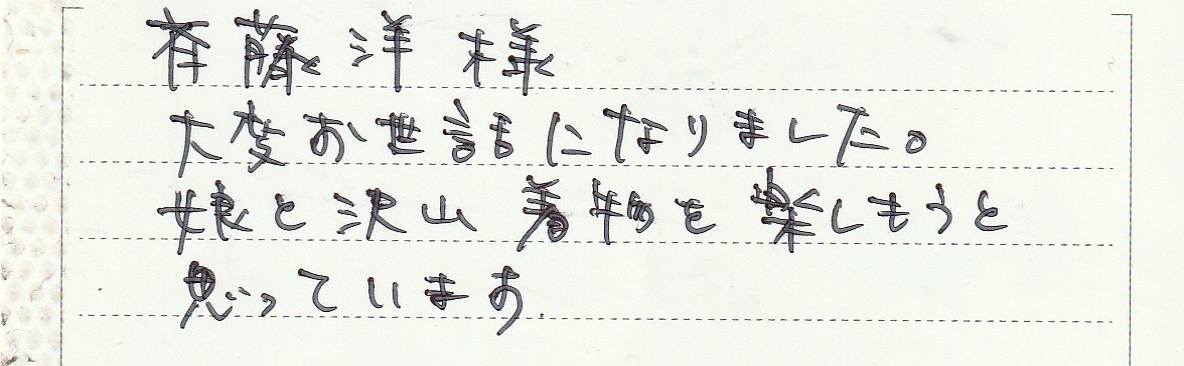 斉藤洋様
大変お世話になりました。
娘と沢山着物を楽しもうと
思っています